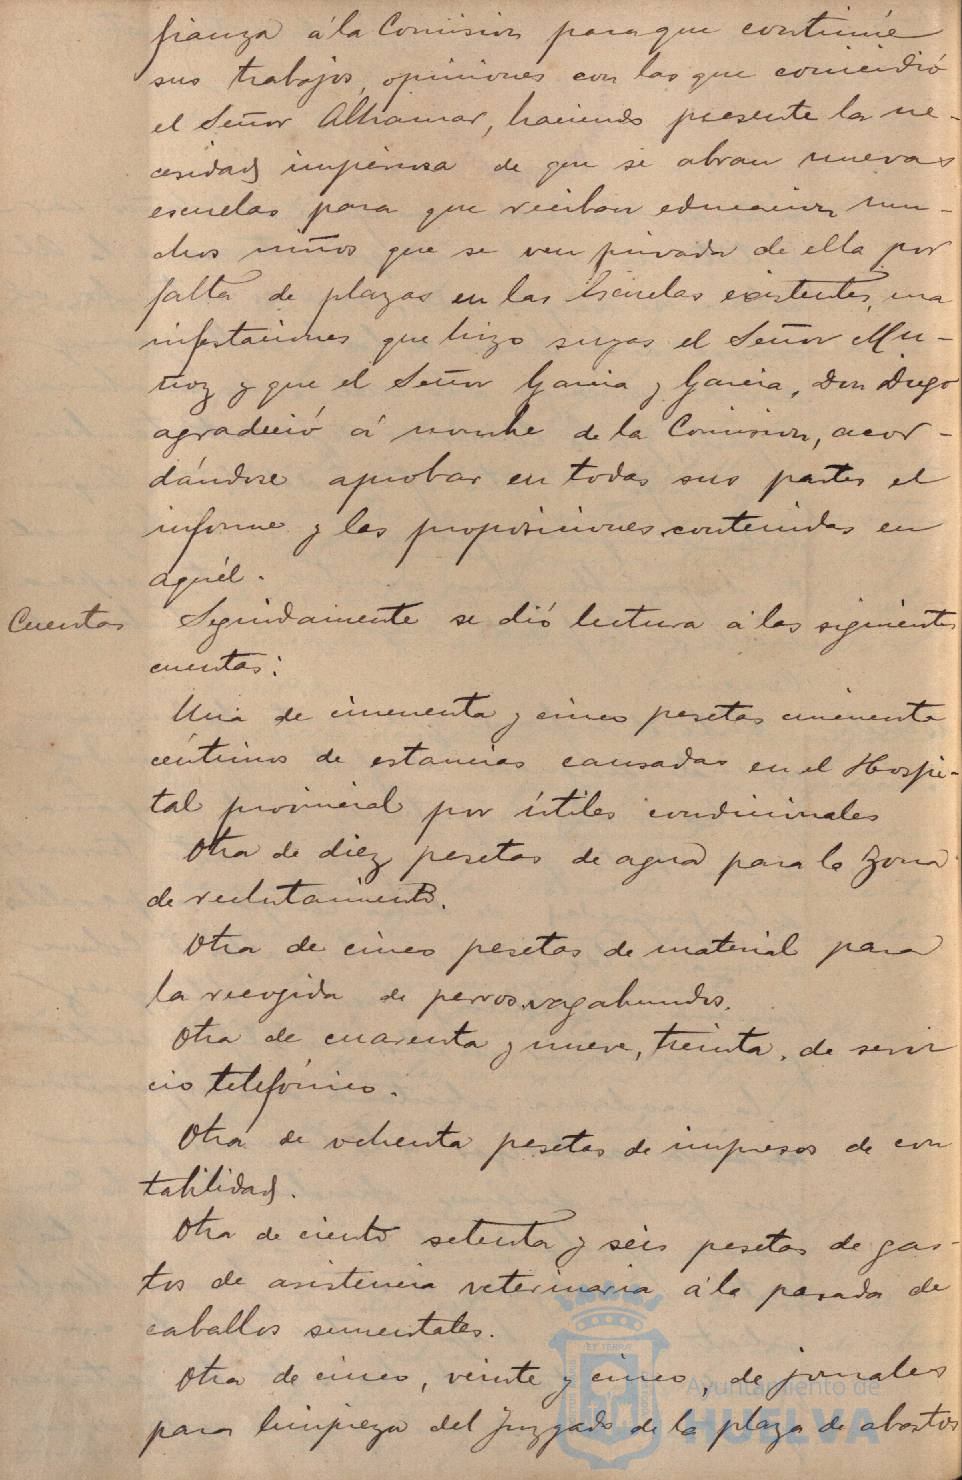 fianza á la Comision para que continúe
sus trabajos, opiniones con las que coincidió
el Señor Alhamar, haciendo presente la ne-
cesidad imperiosa de que se abran nuevas
escuelas para que reciban educacion mu-
chos niños que se ven privada de ella por
falta de plazas en las Escuelas existentes, ma
nifestaciones que hizo suyas el Señor Mu-
ñoz y que el Señor Garcia y Garcia, Don Diego
agradeció á nombre de la Comision, acor-
dándose aprobar en todas sus partes el
informe y las proposiciones contenidas en
aquél.
Cuentas Seguidamente se dió lectura á las siguientes
cuentas:
Una de cincuenta y cinco pesetas cincuenta
céntimos de estancias causadas en el Hospi-
tal provincial por útiles condicionales
Otra de diez pesetas de agua para la Zona
de reclutamiento.
Otra de cinco pesetas de material para
la recogida de perros vagabundos.
Otra de cuarenta y nueve, treinta, de servi
cio telefónico.
Otra de ochenta pesetas de impresos de con
tabilidad.
Otra de ciento setenta y seis pesetas de gas-
tos de asistencia veterinaria á la parada de
caballos sementales.
Otra de cinco, veinte y cinco, de jornales
para limpieza del Juzgado de la plaza de abastos
Ayuntamiento de
HUELVA